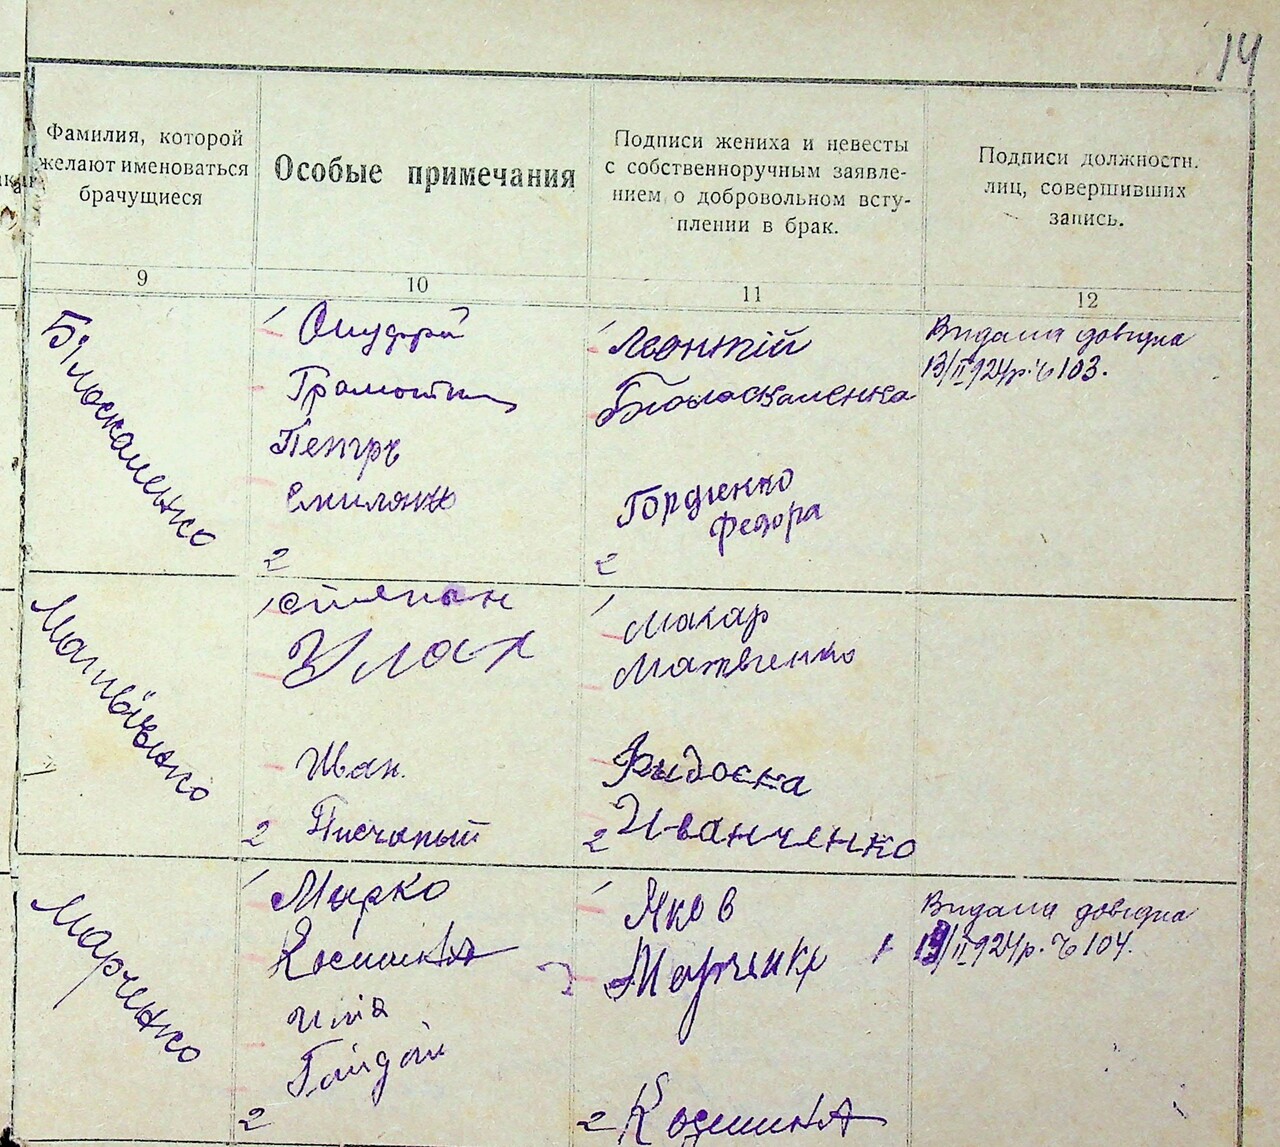 14
Фамилия, которой
желают именоваться
брачущиеся
Особые примечания
Подписи жениха и невесты
с собственноручным заявле-
нием о добровольном всту-
плении в брак.
Подписи должностн.
лиц, совершивших
запись.
9
10
11
12
Білоскаленко
1
Грамотный
Петръ
Емилянь
2
1 Леонтій
Билоскаленко
Гордіенко
Федора
2
Видана довідка
13/II 924 р. Ч 103.
Матвієнко
1 Степан
Улах
Иван.
2 Писчаный
1 Макар
Матвіенко
Иванченко
2
Марченко
1 Марко
Косинка
Гайдай
2
1 Яков
Марченко
2
Видана довідка
13/II 924 р. Ч 104.